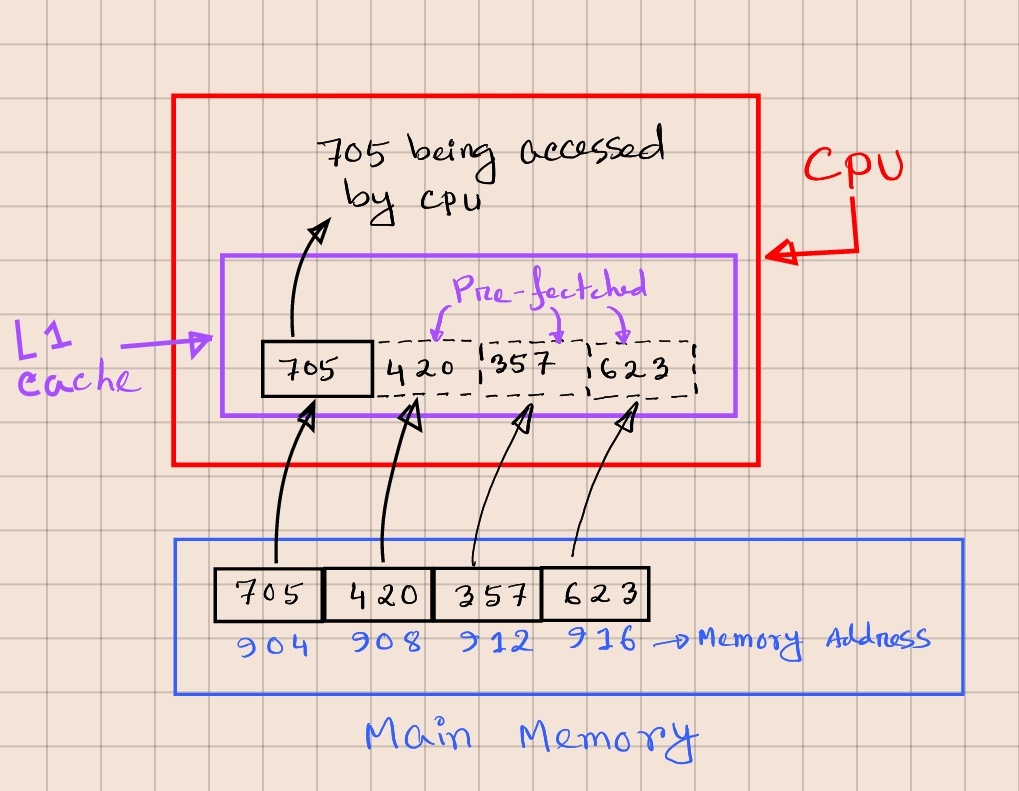 705 being accessed
by cpu
Cpu
Pre-fectched
L1
cache
705 420 357 623
705 420 357 623
904 908 912 916 → Memory Address
Main Memory